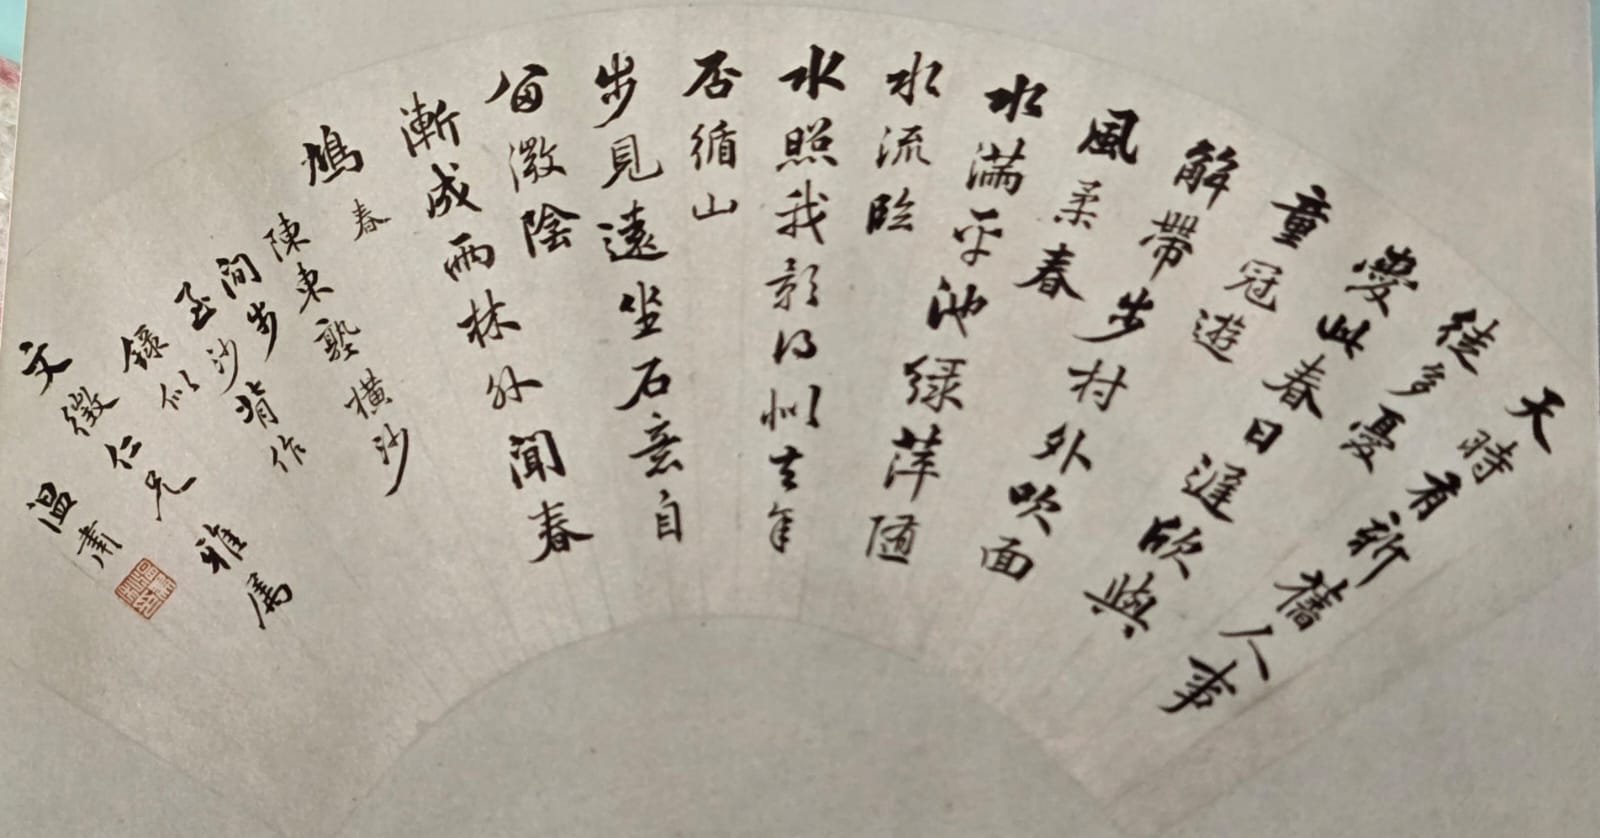 天時有新舊人事
徒多憂
愛此春日遲欣與
童冠遊
解帶步村外吹面
風柔春
水滿平池綠萍隨
水流臨
水照我影得似去年
否循山
步見遠坐石意自
留微陰
漸成雨林外聞春
鳩 春
陳東塾橫沙
間步
至沙背作
錄似
文徵仁兄雅屬
溫肅